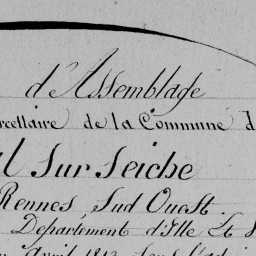 d'Assemblage
rcellaire de la Commune d
l Sur Seiche
Rennes Sud Ouest
Département d'Ille Et
Avril